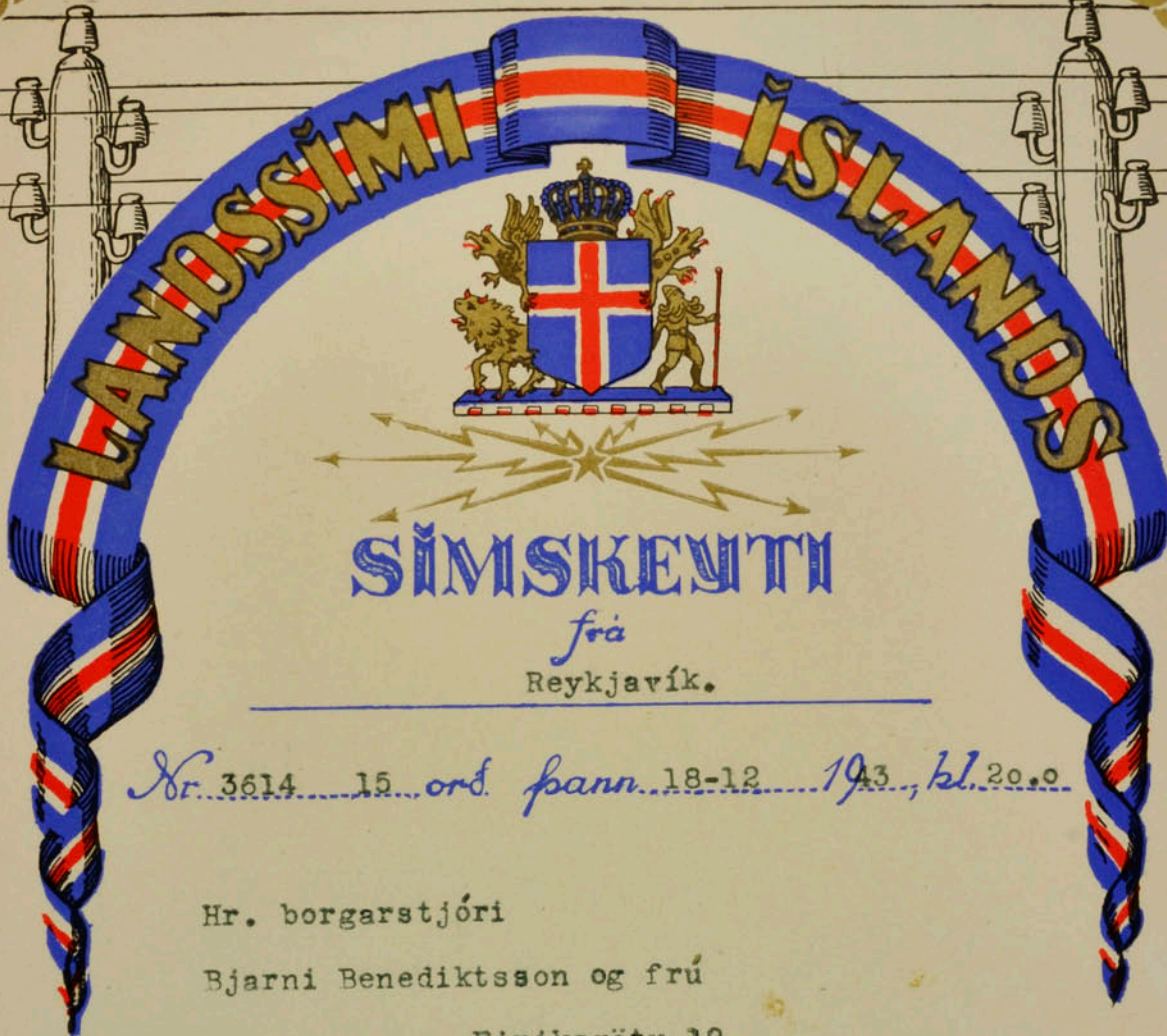 LANDSSÍMI ÍSLANDS
SÍMSKEYTI
frá
Reykjavík.
Nr. 3614 15 orð. þann 18-12 1943, kl. 2o.o
Hr. borgarstjóri
Bjarni Benediktsson og frú